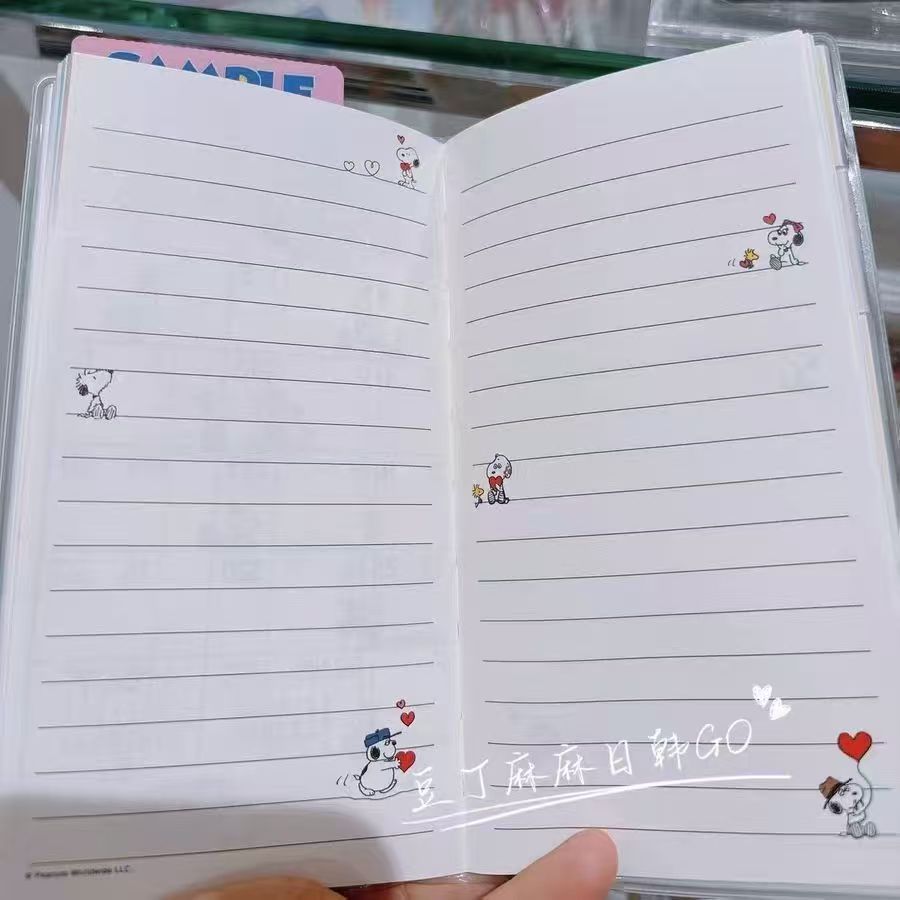 SAMPLE
豆丁麻麻日韩GO
© Peanuts Worldwide LLC.